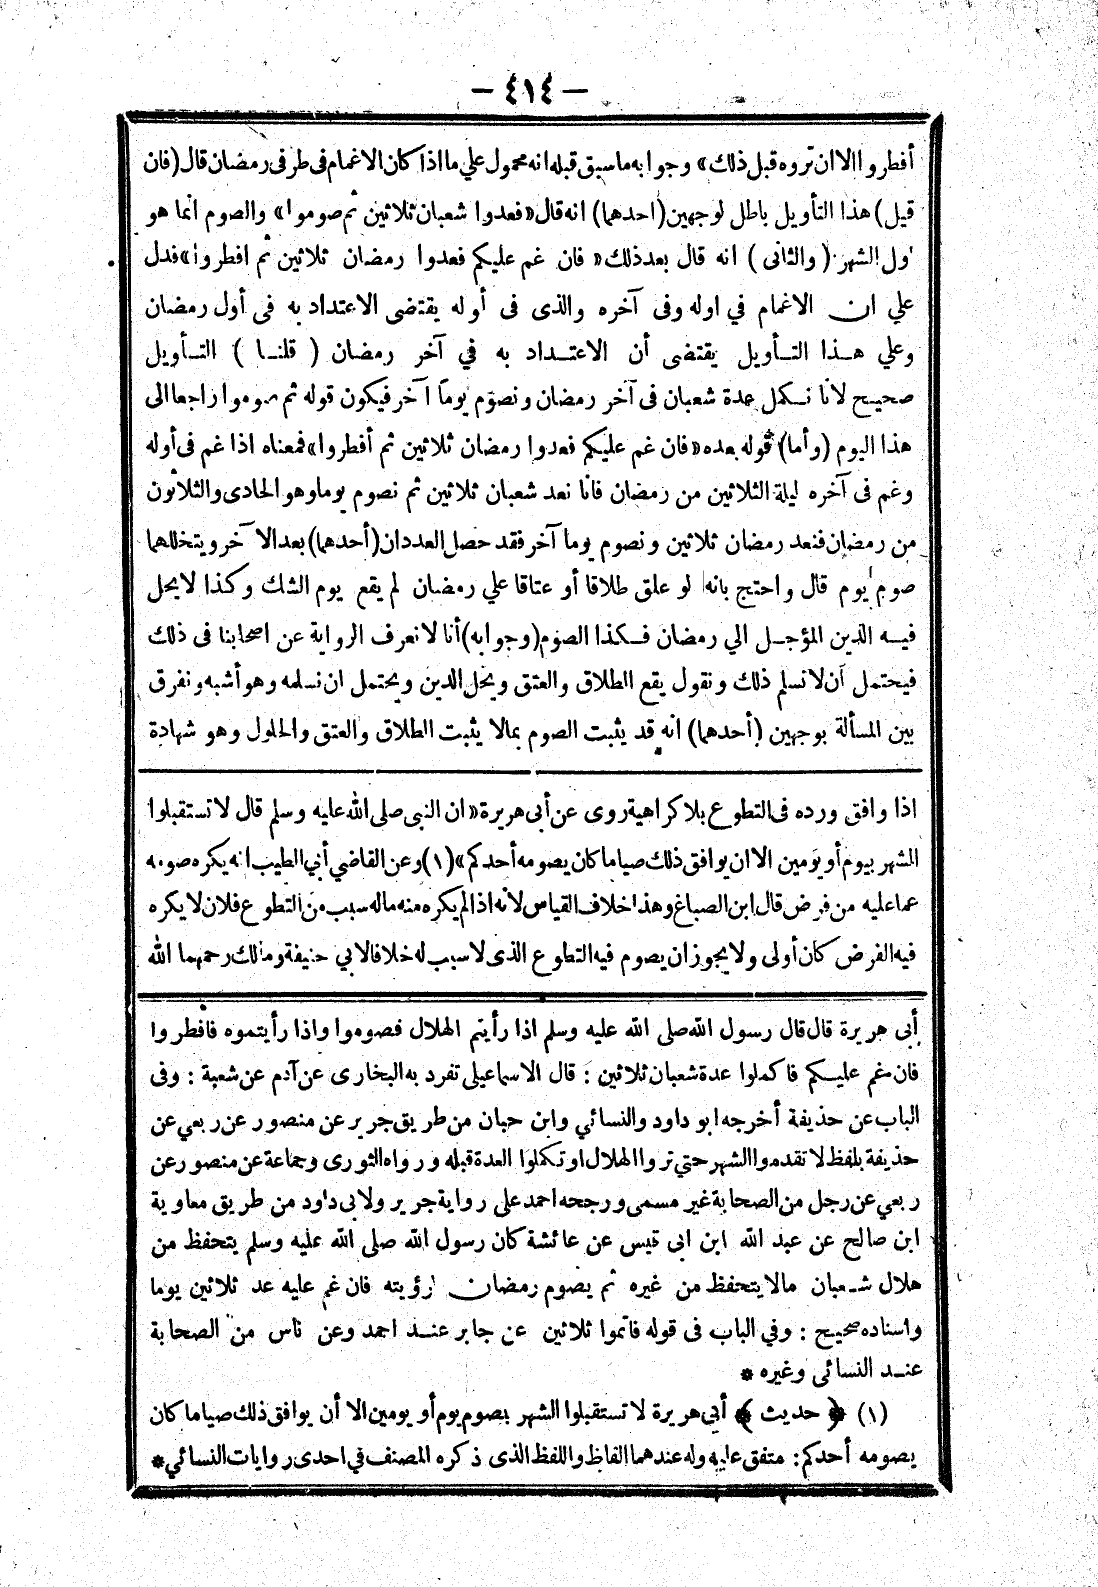 — ٤١٤ —
أفطروا الا ان تروه قبل ذلك» وجوابه ما سبق قبله انه محمول علي ما اذا كان الاغمام فى طرفى رمضان قال (فان
قيل) هذا التأويل باطل لوجهين (احدهما) انه قال «فعدوا شعبان ثلاثين ثم صوموا» والصوم انما هو
اول الشهر (والثانى) انه قال بعد ذلك «فان غم عليكم فعدوا رمضان ثلاثين ثم افطروا» فدل
علي ان الاغمام في اوله وفى آخره والذى فى أوله يقتضى الاعتداد به فى أول رمضان
وعلي هذا التأويل يقتضى أن الاعتداد به في آخر رمضان (قلنا) التأويل
صحيح لانا نكمل عدة شعبان فى آخر رمضان ونصوم يوما آخر فيكون قوله ثم صوموا راجعا الى
هذا اليوم (وأما) قوله بعده «فان غم عليكم فعدوا رمضان ثلاثين ثم أفطروا» فمعناه اذا غم فى أوله
وغم فى آخره ليلة الثلاثين من رمضان فانا نعد شعبان ثلاثين ثم نصوم يوما وهو الحادى والثلاثون
من رمضان فنعد رمضان ثلاثين ونصوم يوما آخر فقد حصل العددان (أحدهما) بعد الآخر ويتخللهما
صوم يوم قال واحتج بانه لو علق طلاقا أو عتاقا علي رمضان لم يقع يوم الشك وكذا لا يحل
فيه الدين المؤجل الي رمضان فكذا الصوم (وجوابه) أنا لا نعرف الرواية عن اصحابنا فى ذلك
فيحتمل أن لا نسلم ذلك ونقول يقع الطلاق والعتق ويحل الدين ويحتمل ان نسلمه وهو أشبه ونفرق
بين المسألة بوجهين (أحدهما) انه قد يثبت الصوم بمالا يثبت الطلاق والعتق والحلول وهو شهادة
اذا وافق ورده فى التطوع بلا كراهية روى عن أبى هريرة «ان النبى صلى الله عليه وسلم قال لا تستقبلوا
الشهر بيوم أو يومين الا ان يوافق ذلك صياما كان يصومه أحدكم» (١) وعن القاضي أبي الطيب انه يكره صومه
عما عليه من فرض قال ابن الصباغ وهذا خلاف القياس لانه اذا لم يكره منه ماله سبب من التطوع فلان لا يكره
فيه الفرض كان أولى ولا يجوز ان يصوم فيه التطوع الذى لا سبب له خلافا لابي حنيفة ومالك رحمهما الله
أبى هريرة قال قال رسول الله صلى الله عليه وسلم اذا رأيتم الهلال فصوموا واذا رأيتموه فافطروا
فان غم عليكم فاكملوا عدة شعبان ثلاثين : قال الاسماعيلى تفرد به البخارى عن آدم عن شعبة : وفى
الباب عن حذيفة أخرجه ابو داود والنسائي وابن حبان من طريق جرير عن منصور عن ربعي عن
حذيفة بلفظ لا تقدموا الشهر حتي تروا الهلال او تكملوا العدة قبله ورواه الثورى وجماعة عن منصور عن
ربعي عن رجل من الصحابة غير مسمى ورجحه احمد على رواية جرير ولابى داود من طريق معاوية
ابن صالح عن عبد الله ابن ابى قيس عن عائشة كان رسول الله صلى الله عليه وسلم يتحفظ من
هلال شعبان مالا يتحفظ من غيره ثم يصوم رمضان لرؤيته فان غم عليه عد ثلاثين يوما
واسناده صحيح : وفي الباب فى قوله فاتموا ثلاثين عن جابر عند احمد وعن ناس من الصحابة
عند النسائى وغيره *
(١) ﴿ حديث ﴾ أبي هريرة لا تستقبلوا الشهر بصوم يوم أو يومين الا أن يوافق ذلك صياما كان
يصومه أحدكم : متفق عليه وله عندهما الفاظ واللفظ الذى ذكره المصنف في احدى روايات النسائي *